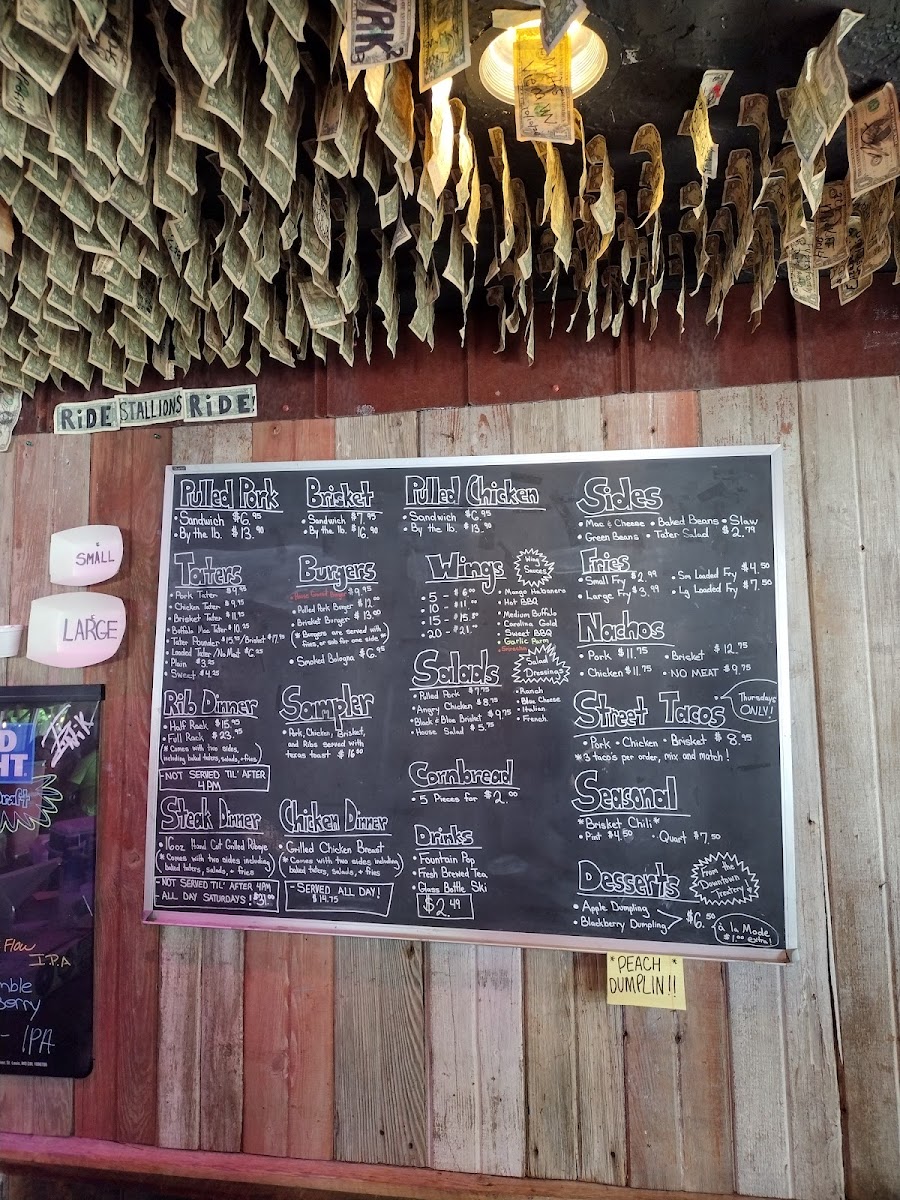 RiDE STALLIONS RiDE!
SMALL
LARGE
Pulled Pork
• Sandwich $6.95
• By the lb. $13.90
Brisket
• Sandwich $7.95
• By the lb. $16.90
Pulled Chicken
• Sandwich $6.95
• By the lb. $13.90
Sides
• Mac & Cheese • Baked Beans • Slaw
• Green Beans • Tater Salad $2.79
Taters
• Pork Tater $9.95
• Chicken Tater $9.95
• Brisket Tater $11.95
• Buffalo Mac Tater $10.25
• Loaded Tater/No Meat
• Plain $3.25
• Sweet $4.25
Burgers
• Pulled Pork Burger $12
• Brisket Burger $13.00
(* Burgers are served with
fries, or sub for one side *)
• Smoked Bologna $6.95
Wings
5 - $6.00
10 - $11.00
15 -
20 -
Wing Sauces
• Mango Habanero
• Hot BBQ
• Medium Buffalo
• Carolina Gold
• Sweet BBQ
• Garlic Parm
• Sriracha
Fries
• Small Fry $2.99
• Large Fry $3.99
• Sm Loaded Fry $4.50
• Lg Loaded Fry $7.50
Nachos
• Pork $11.75
• Brisket $12.75
• Chicken $11.75
• NO MEAT $9.75
Salads
• Pulled Pork $7.75
• Angry Chicken $8.75
• Black & Blue Brisket $9.75
• House Salad $5.75
Salad Dressings
• Ranch
• Blue Cheese
• Italian
• French
Rib Dinner
• Half Rack $15.95
• Full Rack $23.75
(* Comes with two sides,
including baked taters, salads, + fries)
-NOT SERVED TIL' AFTER
4 PM
Sampler
• Pork, Chicken, Brisket,
and Ribs served with
texas toast $16.00
Street Tacos
Thursdays
ONLY!
• Pork • Chicken • Brisket $8.95
* 3 taco's per order, mix and match!
Cornbread
• 5 Pieces for $2.00
Seasonal
*Brisket Chili*
• Pint $4.50 • Quart $7.50
Steak Dinner
• 16oz Hand Cut Grilled Ribeye
(* Comes with two sides including
baked taters, salads, + fries)
-NOT SERVED TIL' AFTER 4PM
ALL DAY SATURDAYS!
Chicken Dinner
• Grilled Chicken Breast
(* Comes with two sides, including
baked taters, salads, + fries)
-SERVED ALL DAY!
$14.75
Drinks
• Fountain Pop
• Fresh Brewed Tea
• Glass Bottle Ski
$2.49
Desserts
From the
Downtown
Treatery
• Apple Dumpling
• Blackberry Dumpling
$6.50
à la Mode
$1.00 extra!
*PEACH*
DUMPLIN!!
HT.
Flow
I.P.A
- IPA